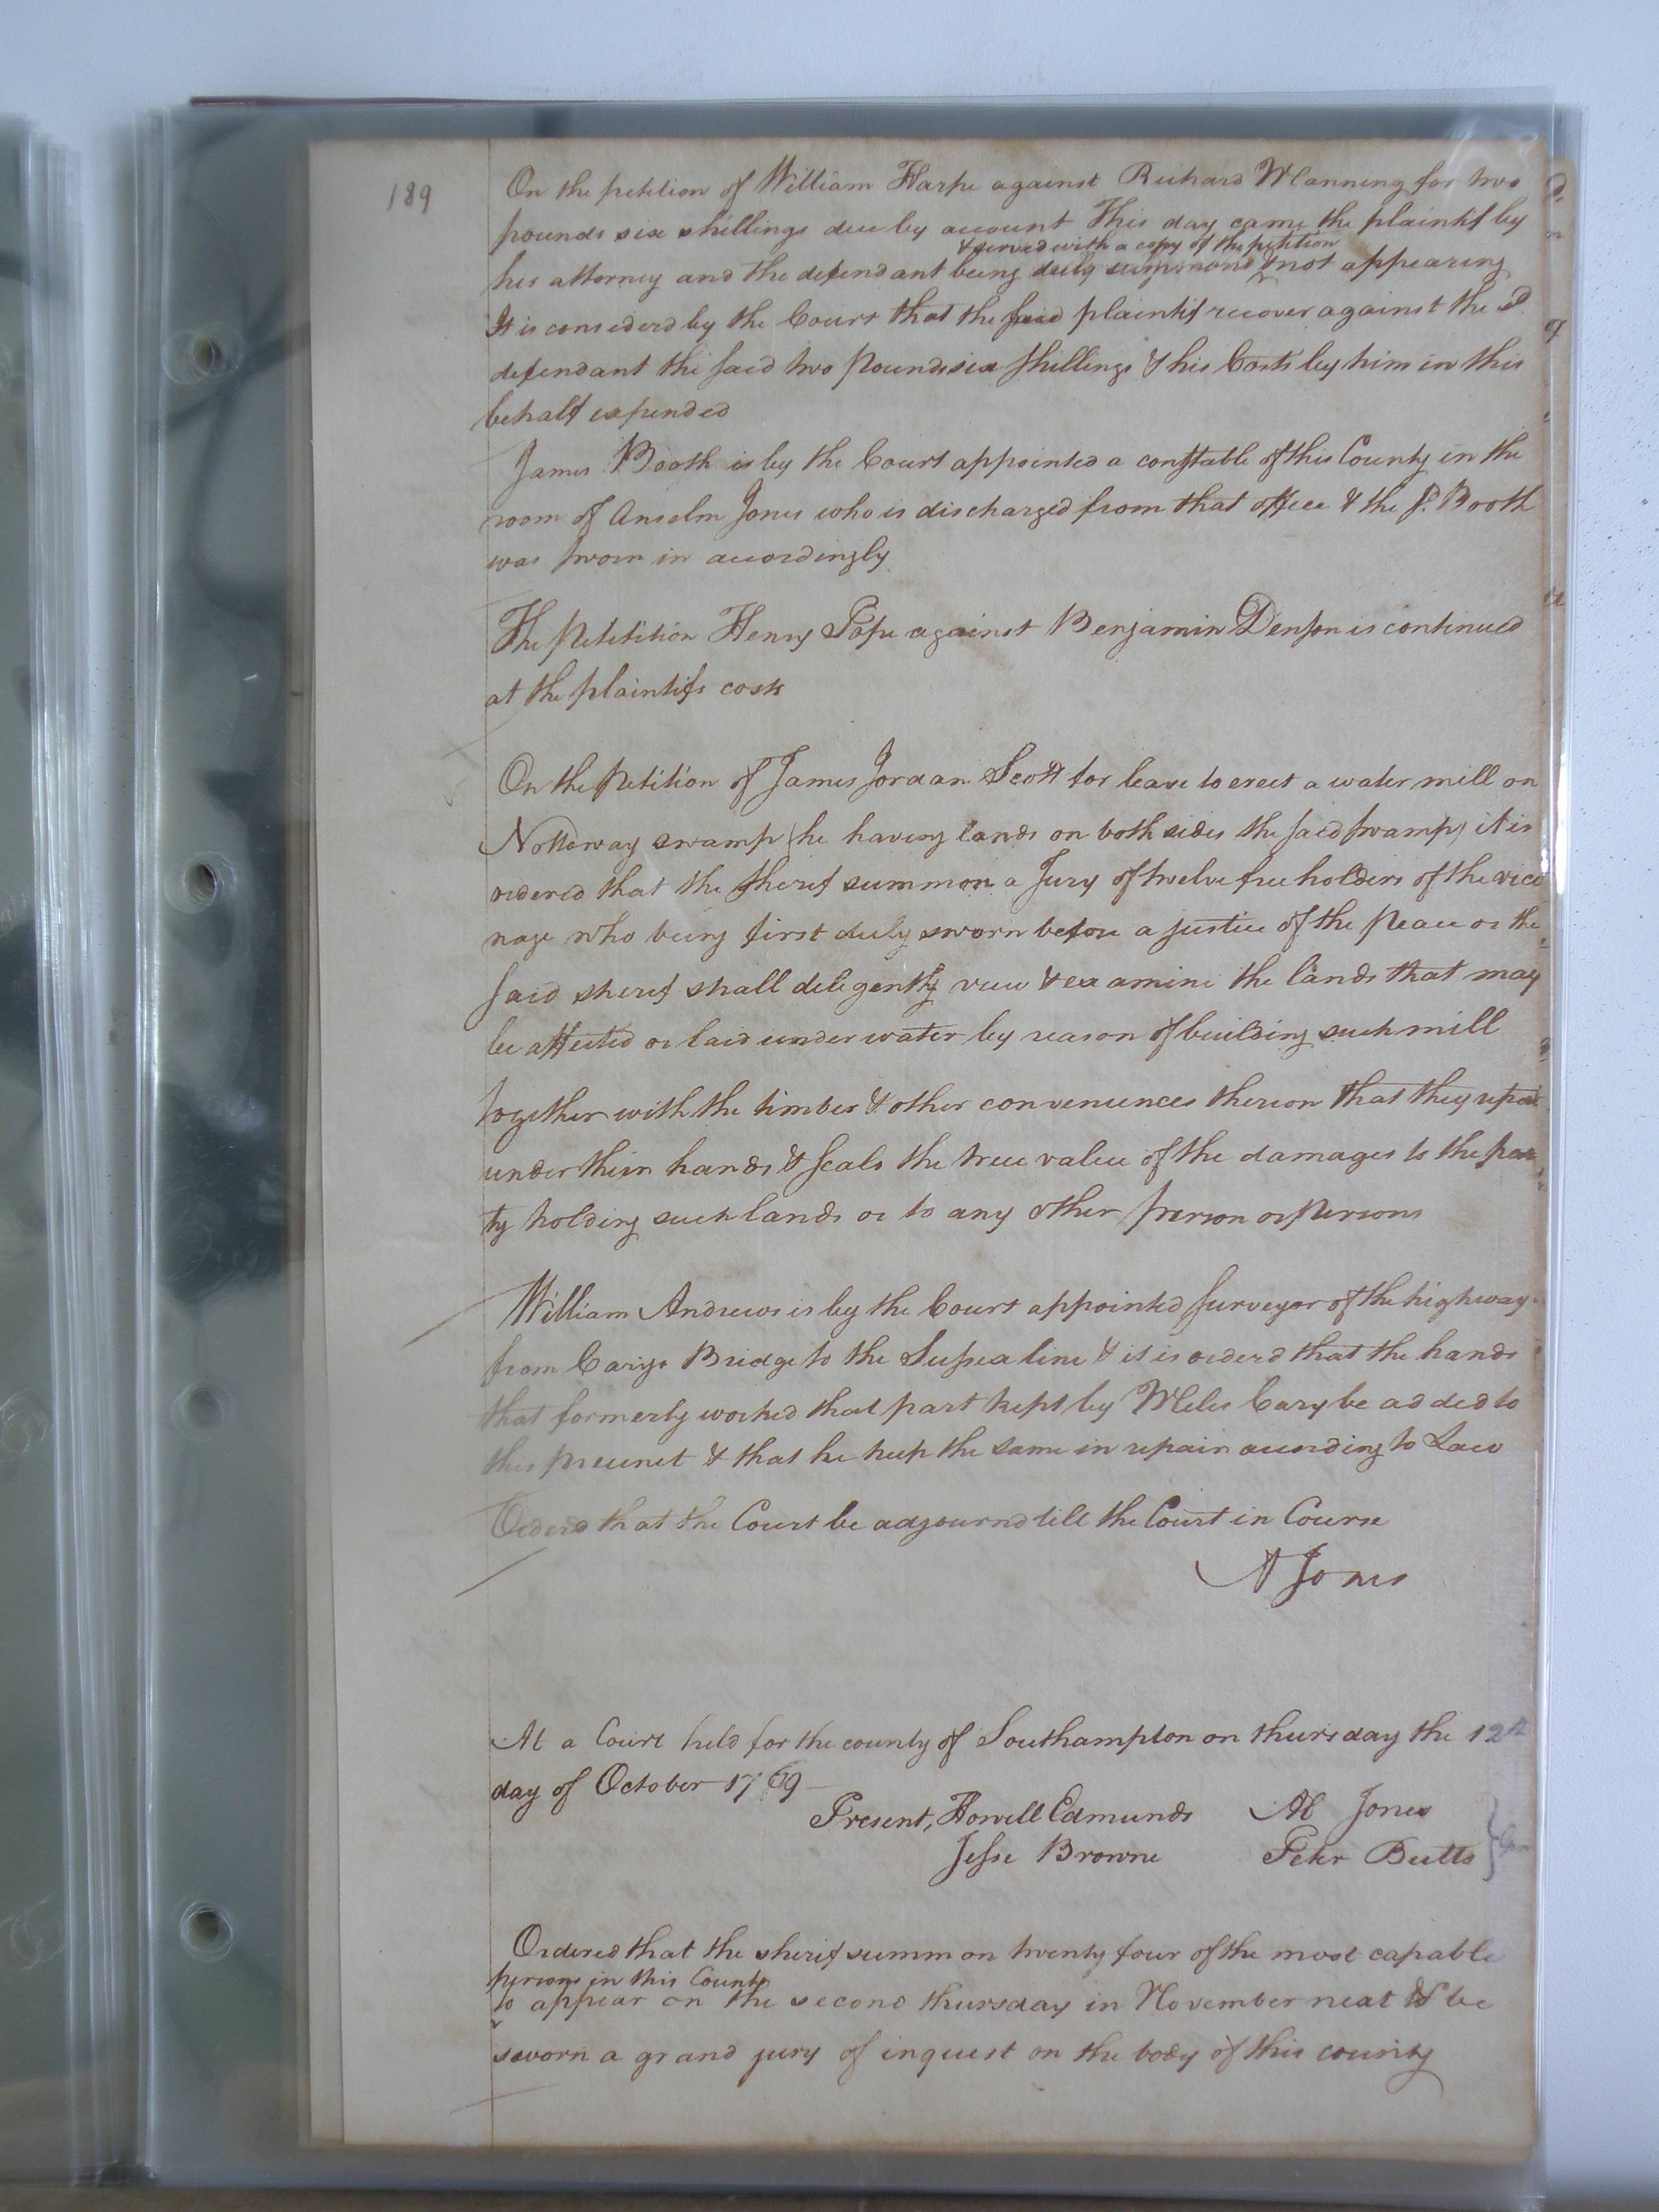 189
On the petition of William Harpe against Richard Manning for two
pounds six shillings due by account This day came the plaintif by
& served with a copy of the petition
his attorney and the defendant being duly summond & not appearing
It is considerd by the Court that the said plaintif recover against the sd
defendant the said two Pounds six shillings & his Costs by him in this
behalf expended
James Booth is by the Court appointed a constable of this County in the
room of Anselm Jones who is discharged from that office & the sd. Booth
was sworn in accordingly
The Petitition Henry Pope against Benjamin Denson is continued
at the plaintifs costs
On the Petition of James Jordan Scott for leave to erect a water mill on
Nottoway swamp (he having lands on both sides the said swamp) it is
ordered that the sherif summon a Jury of twelve freeholders of the vici
nage who being first duly sworn before a justice of the Peace or the
said sherif shall diligently view & examine the lands that may
be affected or laid under water by reason of building such mill
together with the timber & other conveniences thereon that they report
under their hands & seals the true value of the damages to the par
ty holding such lands or to any other person or Persons
William Andrews is by the Court appointed surveyor of the highway
from Carys Bridge to the Sussex line & it is orderd that the hands
that formerly worked that part kept by Miles Cary be added to
this precinct & that he keep the same in repair according to Law
Orderd that the Court be adjournd till the Court in Course
A Jones
At a Court held for the county of Southampton on thursday the 12th
day of October 1769
Present, Howell Edmunds Al Jones
Jesse Browne Peter Butts
Ordered that the sherif summon twenty four of the most capable
persons in this County
to appear on the second thursday in November next to be
sworn a grand jury of inquest on the body of this county